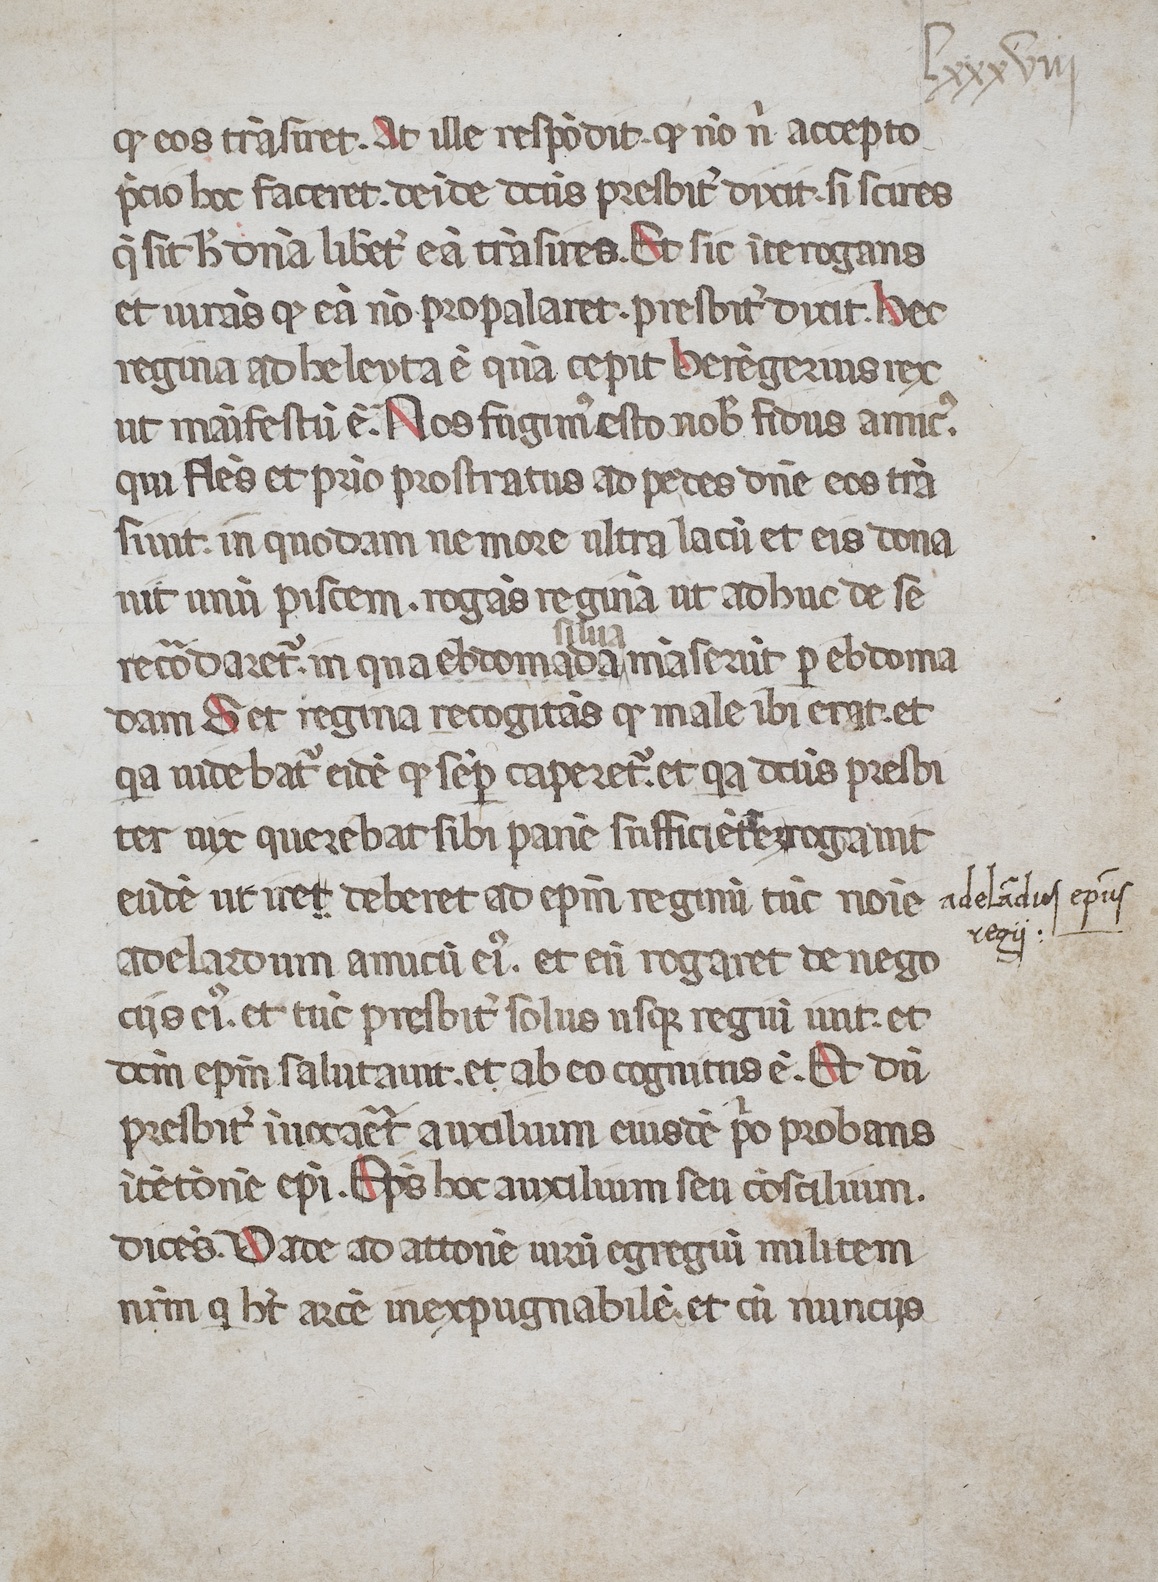 lxxxviij
qꝫ eos trāsiret. At ille respōdit. qꝫ nō nͥ accepto
p̄cio hoc faceret. deīde dc̄us presbit᷑ dixit. si scires
q̄ sit h̄ dn̄a libēt᷑ eā trāsires. Et sic īterogans
et iurās qꝫ eā nō propalaret. presbit᷑ dixit. hec
regina adheleyta ē quā cepit berēgerius rex
ut māifestū ē. Nos fugimꝰ esto nob̄ fidus amicꝰ.
qui flēs et prīo prostratus ad pedes dn̄e eos trā
siuit. in quodam nemore ultra lacū et eis dona
uit unū piscem. rogās reginā ut adhuc de se
silua
recōdaret᷑. in qua ebdomada māserūt ꝑ ebdoma
dam Set regina recogitās qꝫ male ibi erat. et
qa uidebat᷑ eidē qꝫ sēꝑ caperet᷑. et qa dc̄us presbi
ter uix querebat sibi panē sufficiēter rogauit
eūdē ut iret deberet ad ep̄m reginū tūc noīe
adelādus ep̄us
regij:
adelardum amicū eiꝰ. et eū rogaret de nego
cijs eiꝰ. et tūc presbit᷑ solus usqꝫ regiū iuit. et
dc̄m ep̄m salutauit. et ab eo cognitus ē. Et dū
presbit᷑ īuocaēt᷑ auxilium eiusdē pͥo probans
ītētōnē ep̄i. Ep̄s hoc auxilium seu cōscilium.
dicēs. Vade ad attonē uirū egregiū militem
nr̄m q ht᷑ arcē inexpugnabilē. et cū nuncijs